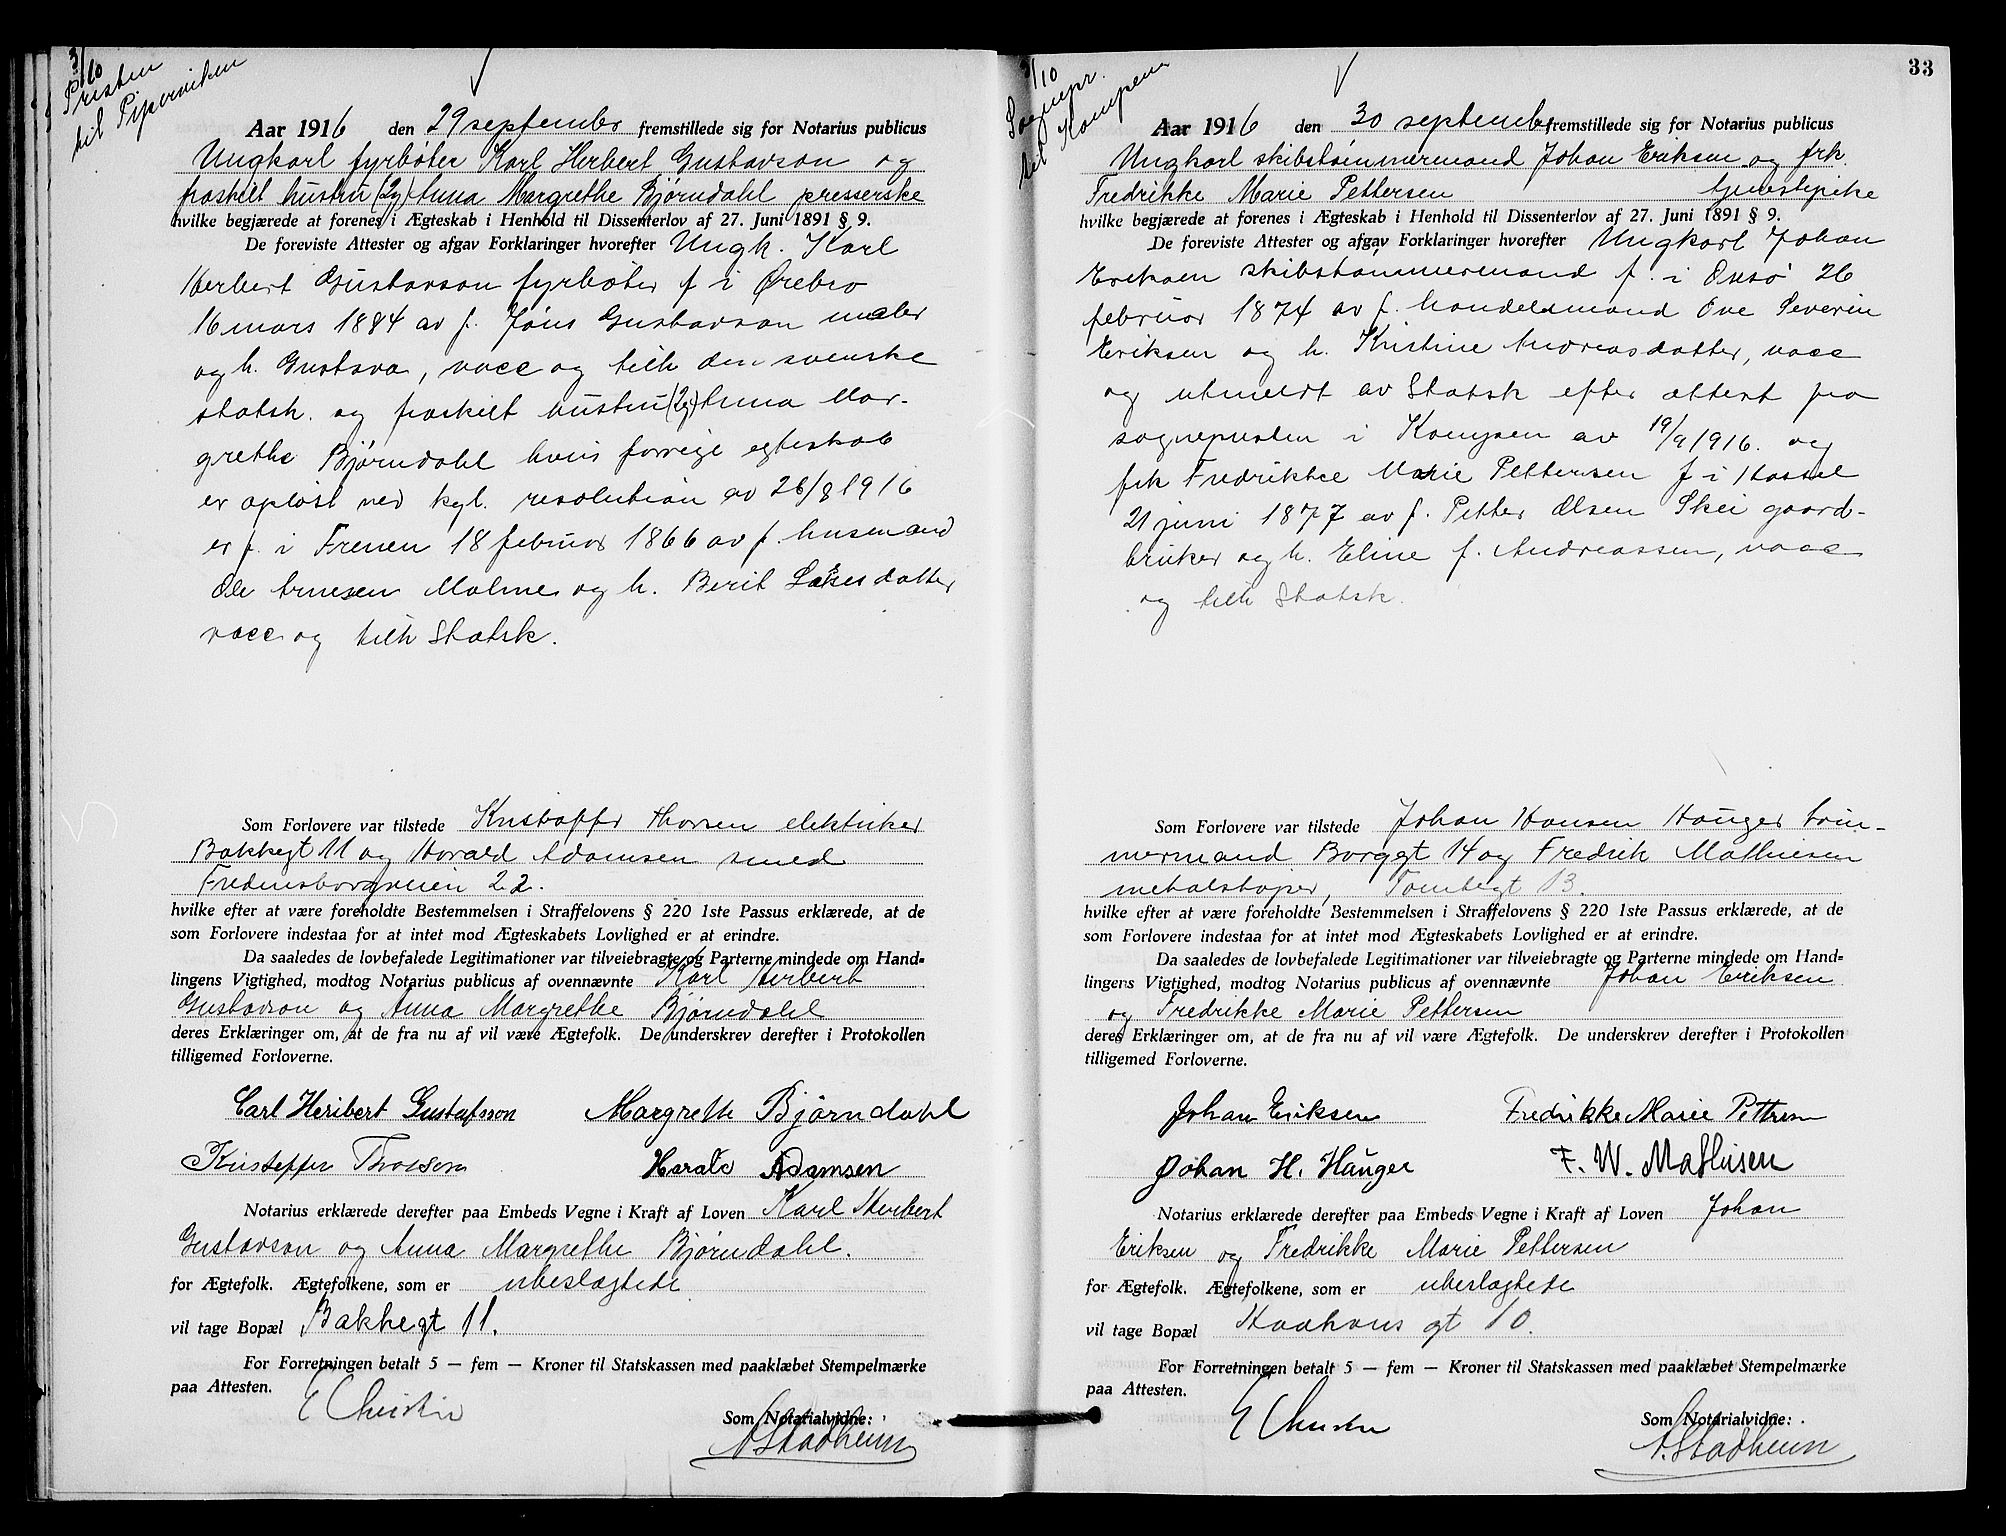 3/10
Presten
til Piperviken
Aar 1916 den 29 september fremstillede sig for Notarius publicus
Ungkarl fyrbøter Karl Herbert Gustavson og
fraskilt hustru (2g) Anna Margrethe Bjørndahl presserske
hvilke begjærede at forenes i Ægteskab i Henhold til Dissenterlov af 27. Juni 1891 § 9.
De foreviste Attester og afgav Forklaringer hvorefter Ungk. Karl
Herbert Gustavson fyrbøter f i Ørebro
16 mars 1884 av f. Jöns Gustavson maler
og h. Gustava, vacc og tilh den svenske
statsk. og fraskilt hustru (2g) Anna Mar-
grethe Bjørndahl hvis forrige egteskab
er opløst ved kgl. resolution av 26/8 1916
er f. i Frenen 18 februar 1866 av f. husmand
Ole Arnesen Malme og h. Berit Lasesdatter
vacc og tilh Statsk.
Som Forlovere var tilstede Kristoffer Thorsen elektriker
Bakkegt 11 og Harald Adamsen smed
Fredensborgveien 22.
hvilke efter at være foreholdte Bestemmelsen i Straffelovens § 220 1ste Passus erklærede, at de
som Forlovere indestaa for at intet mod Ægteskabets Lovlighed er at erindre.
Da saaledes de lovbefalede Legitimationer var tilveiebragte og Parterne mindede om Hand-
lingens Vigtighed, modtog Notarius publicus af ovennævnte Karl Herbert
Gustavson og Anna Margrethe Bjørndahl
deres Erklæringer om, at de fra nu af vil være Ægtefolk. De underskrev derefter i Protokollen
tilligemed Forloverne.
Carl Heribert Gustafsson Margrethe Bjørndahl
Kristoffer Thorsen Harald Adamsen
Notarius erklærede derefter paa Embeds Vegne i Kraft af Loven Karl Herbert
Gustavson og Anna Margrethe Bjørndahl.
for Ægtefolk. Ægtefolkene, som er ubeslægtede
vil tage Bopæl Bakkegt 11.
For Forretningen betalt 5 — fem — Kroner til Statskassen med paaklæbet Stempelmærke
paa Attesten.
E Christie
Som Notarialvidne:
A Stadheim
33
3/10
Sognepr.
til Kampen
Aar 1916 den 30 september fremstillede sig for Notarius publicus
Ungkarl skibstømmermand Johan Eriksen og frk.
Fredrikke Marie Pettersen tjenestepike
hvilke begjærede at forenes i Ægteskab i Henhold til Dissenterlov af 27. Juni 1891 § 9.
De foreviste Attester og afgav Forklaringer hvorefter Ungkarl Johan
Eriksen skibstømmermand f. i Onsø 26
februar 1874 av f. handelsmand Ove Severin
Eriksen og h. Kristine Andreasdatter, vacc
og utmeldt av Statsk efter attest fra
sognepresten i Kampen av 19/9 1916. og
frk Fredrikke Marie Pettersen f i Hassel
21 juni 1877 av f. Petter Olsen Skei gaard-
bruker og h. Eline f. Andreassen, vacc
og tilh Statsk.
Som Forlovere var tilstede Johan Hansen Hauger tøm-
mermand Borggt 14 og Fredrik Mathiesen
metalstøper, Tomtegt 13.
hvilke efter at være foreholdte Bestemmelsen i Straffelovens § 220 1ste Passus erklærede, at de
som Forlovere indestaa for at intet mod Ægteskabets Lovlighed er at erindre.
Da saaledes de lovbefalede Legitimationer var tilveiebragte og Parterne mindede om Hand-
lingens Vigtighed, modtog Notarius publicus af ovennævnte Johan Eriksen
og Fredrikke Marie Pettersen
deres Erklæringer om, at de fra nu af vil være Ægtefolk. De underskrev derefter i Protokollen
tilligemed Forloverne.
Johan Eriksen Fredrikke Marie Pettersen
Johan H. Hauger F. W. Mathisen
Notarius erklærede derefter paa Embeds Vegne i Kraft af Loven Johan
Eriksen og Fredrikke Marie Pettersen
for Ægtefolk. Ægtefolkene, som er ubeslægtede
vil tage Bopæl Haakons gt 10.
For Forretningen betalt 5 — fem — Kroner til Statskassen med paaklæbet Stempelmærke
paa Attesten.
E Christie
Som Notarialvidne:
A. Stadheim